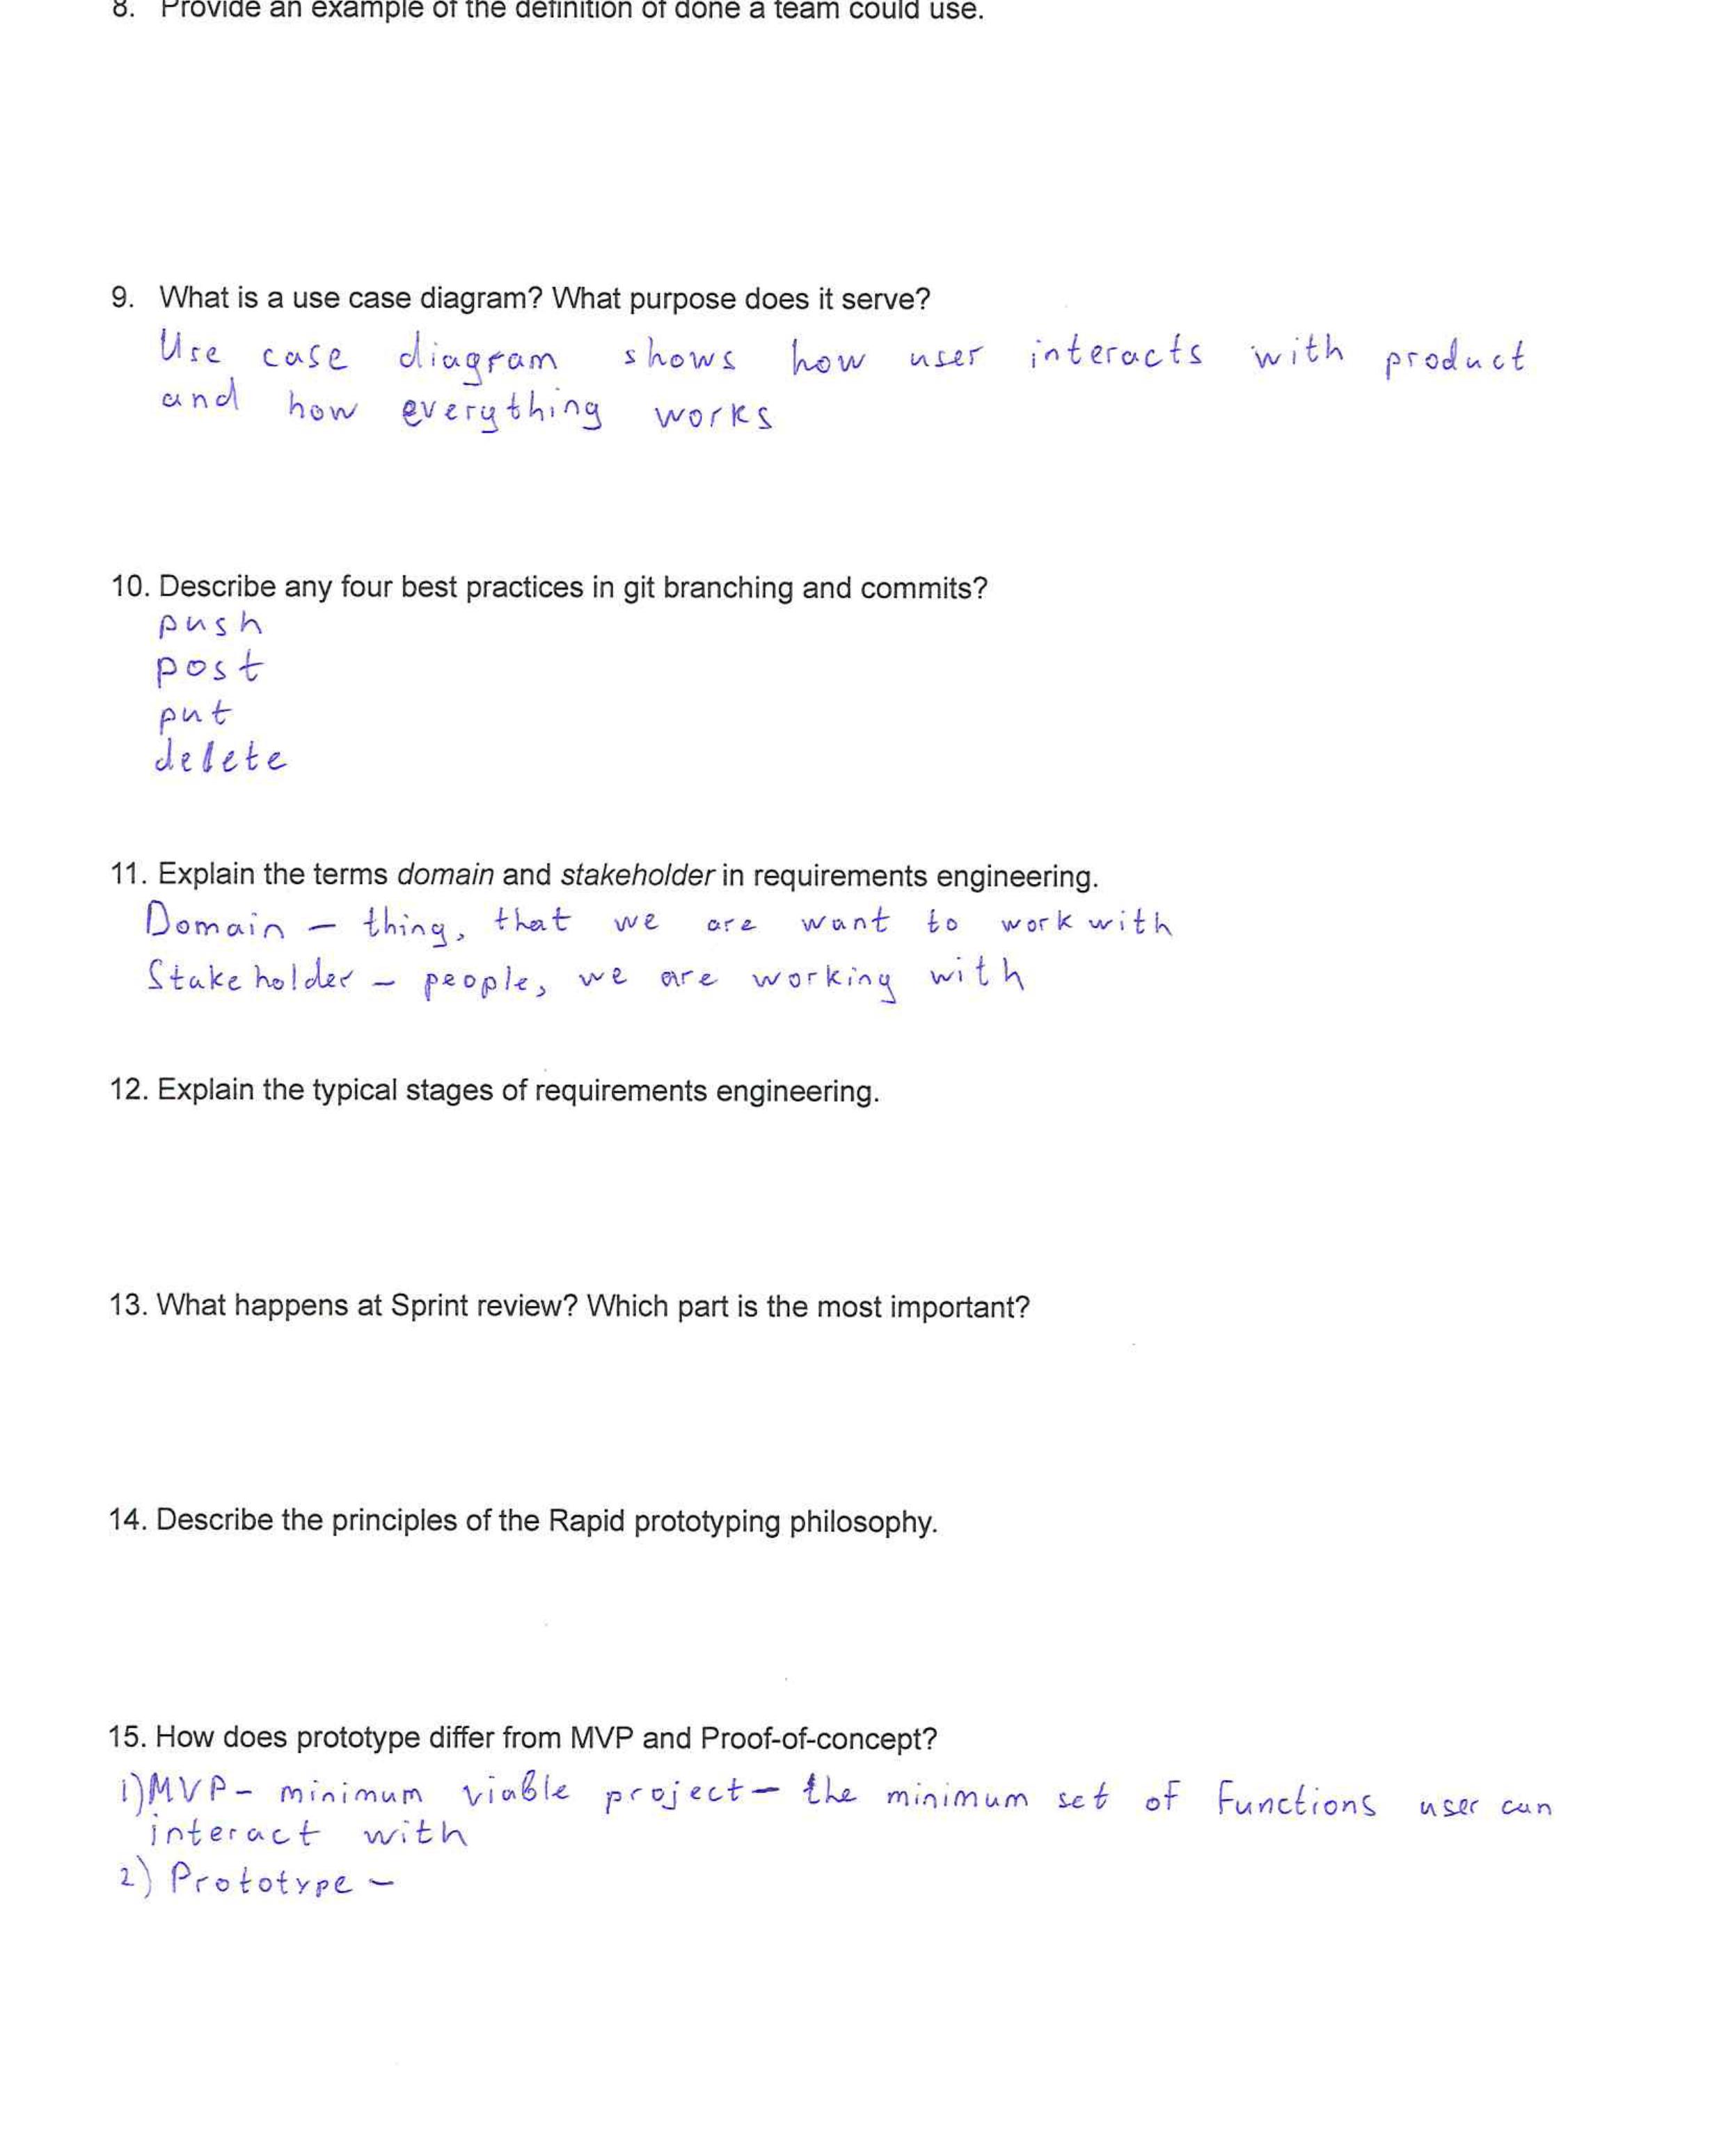 8. Provide an example of the definition of done a team could use.
9. What is a use case diagram? What purpose does it serve?
Use case diagram shows how user interacts with product
and how everything works
10. Describe any four best practices in git branching and commits?
push
post
put
delete
11. Explain the terms domain and stakeholder in requirements engineering.
Domain – thing, that we are want to work with
Stakeholder – people, we are working with
12. Explain the typical stages of requirements engineering.
13. What happens at Sprint review? Which part is the most important?
14. Describe the principles of the Rapid prototyping philosophy.
15. How does prototype differ from MVP and Proof-of-concept?
1) MVP – minimum viable project – the minimum set of functions user can
interact with
2) Prototype –